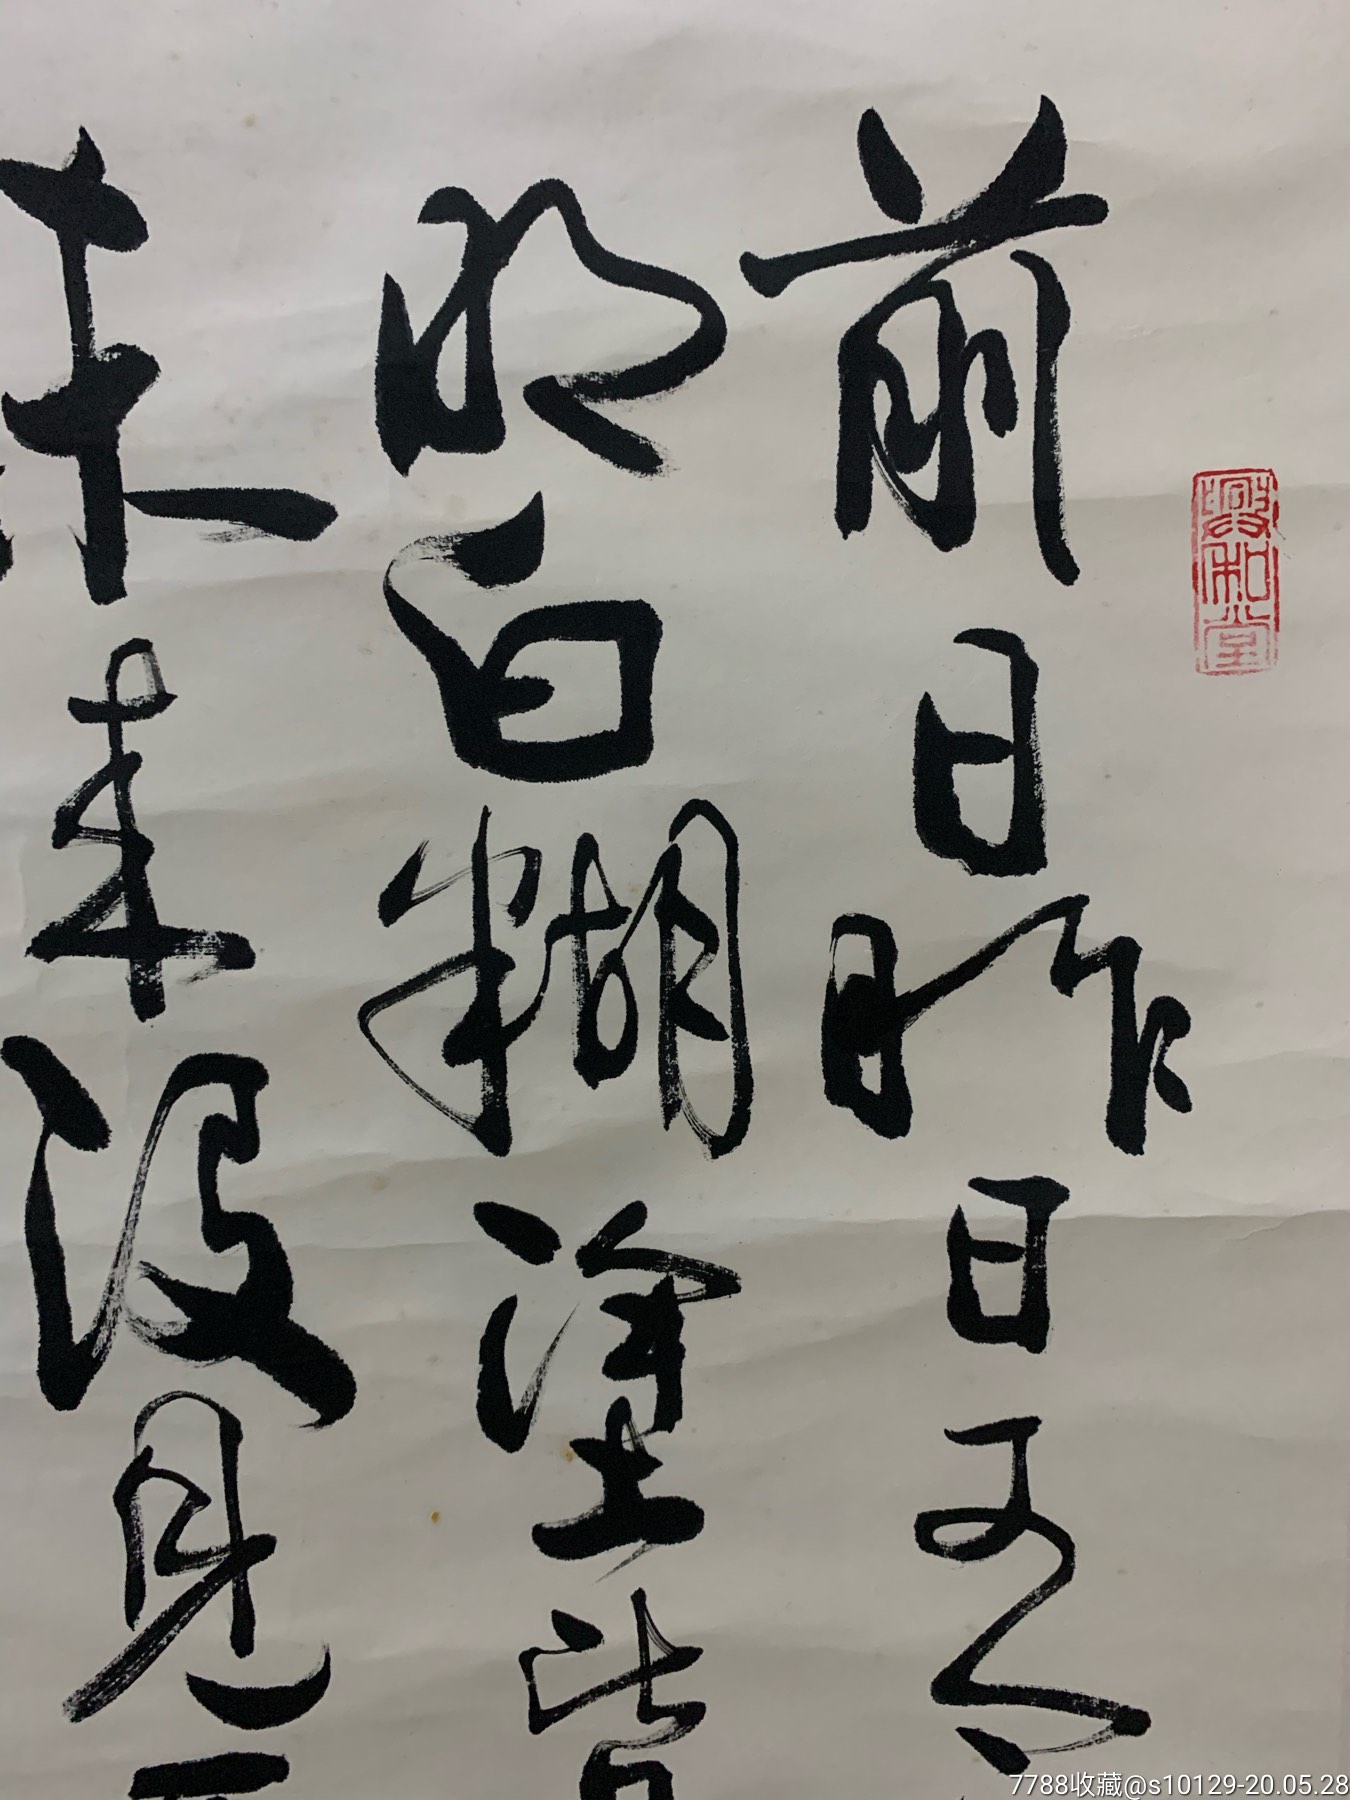 前日昨日
明白糊塗皆
未来没見
和堂
7788收藏@s10129-20.05.28